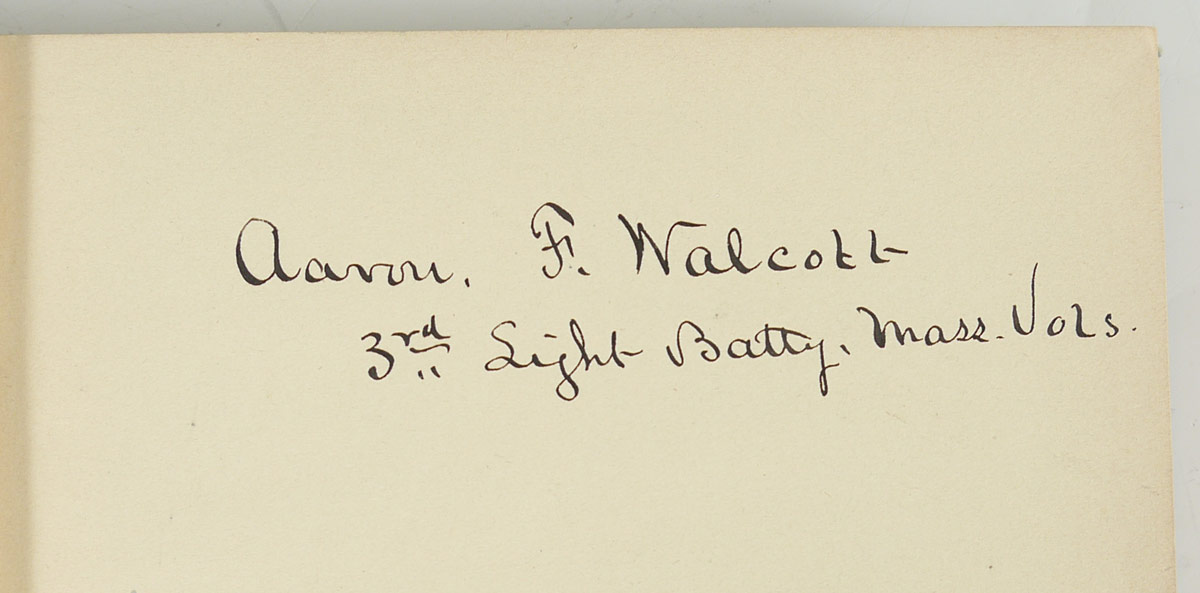 Aaron. F. Walcott
3rd Light Batty. Mass. Vols.